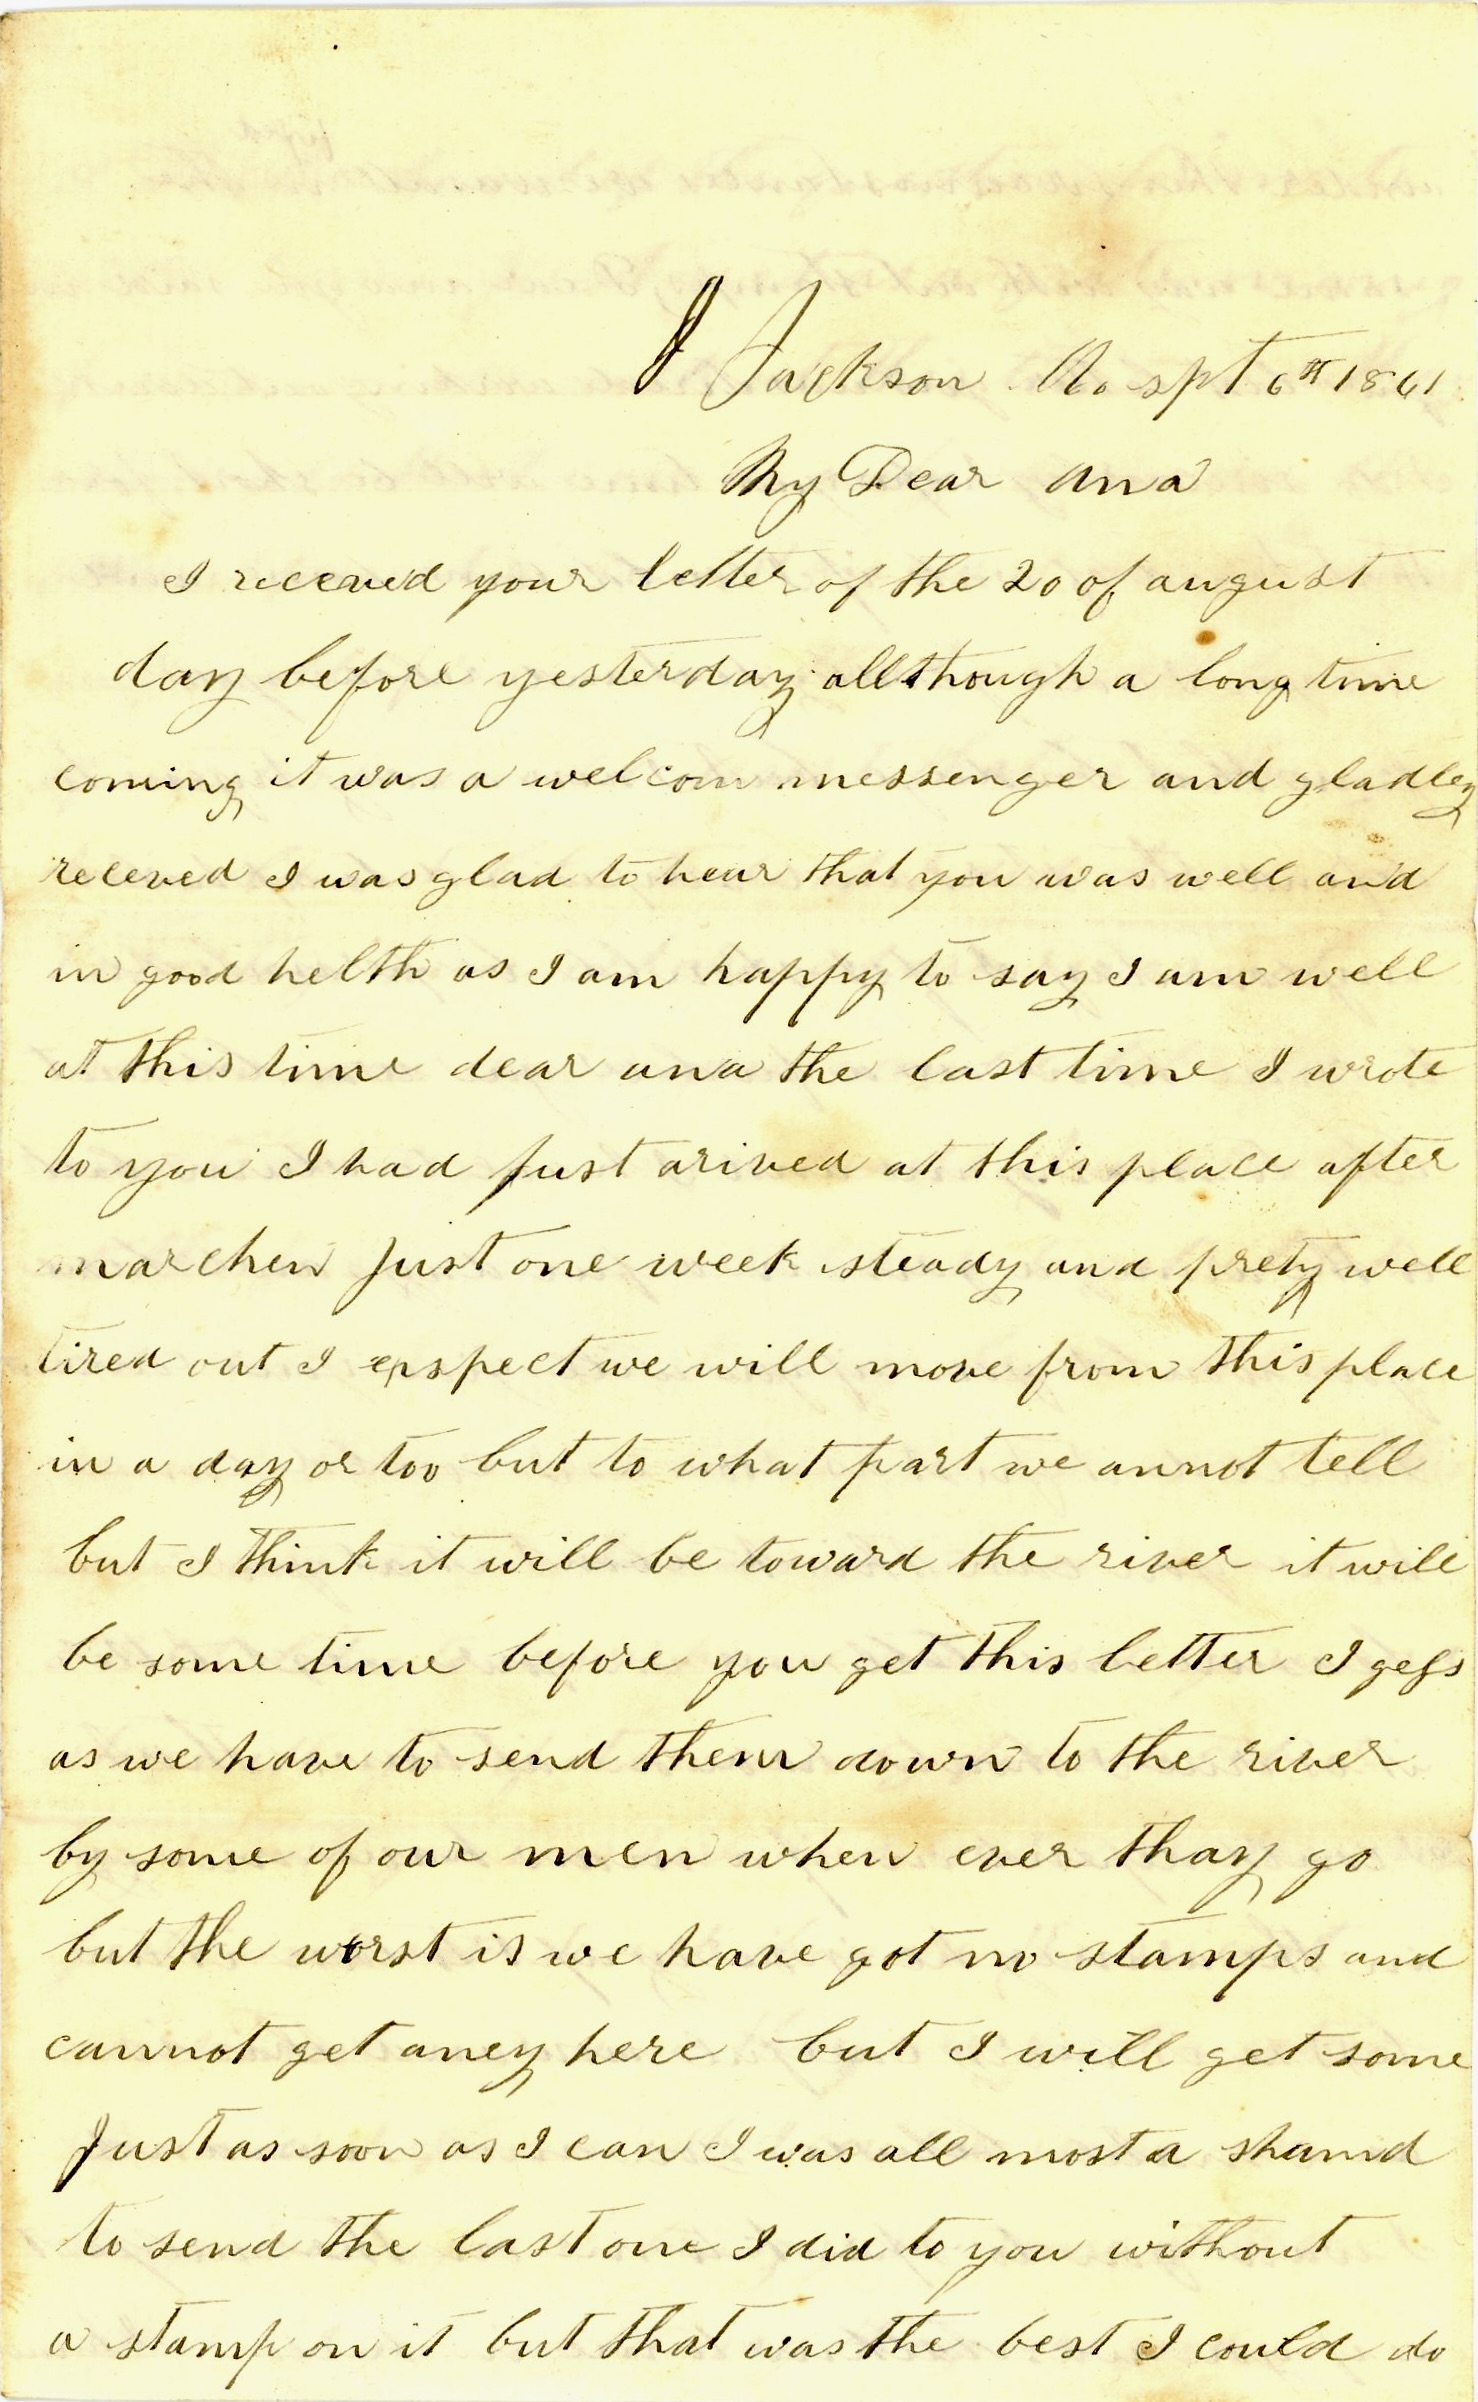 J Jackson Mo spt 6th 1861
My Dear Ana
I receved your letter of the 20 of august
day before yesterday allthough a long time
coming it was a welcom messenger and gladley
receved I was glad to hear that you was well and
in good helth as I am happy to say I am well
at this time dear ana the last time I wrote
to you I had Just arived at this place after
marchen Just one week steady and prety well
tired out I exspect we will move from this place
in a day or too but to what part we annot tell
but I think it will be toward the river it will
be some time before you get this letter I gess
as we have to send them down to the river
by some of our men when ever thay go
but the worst is we have got no stamps and
cannot get aney here but I will get some
Just as soon as I can I was all most a shamd
to send the last one I did to you without
a stamp on it but that was the best I could do